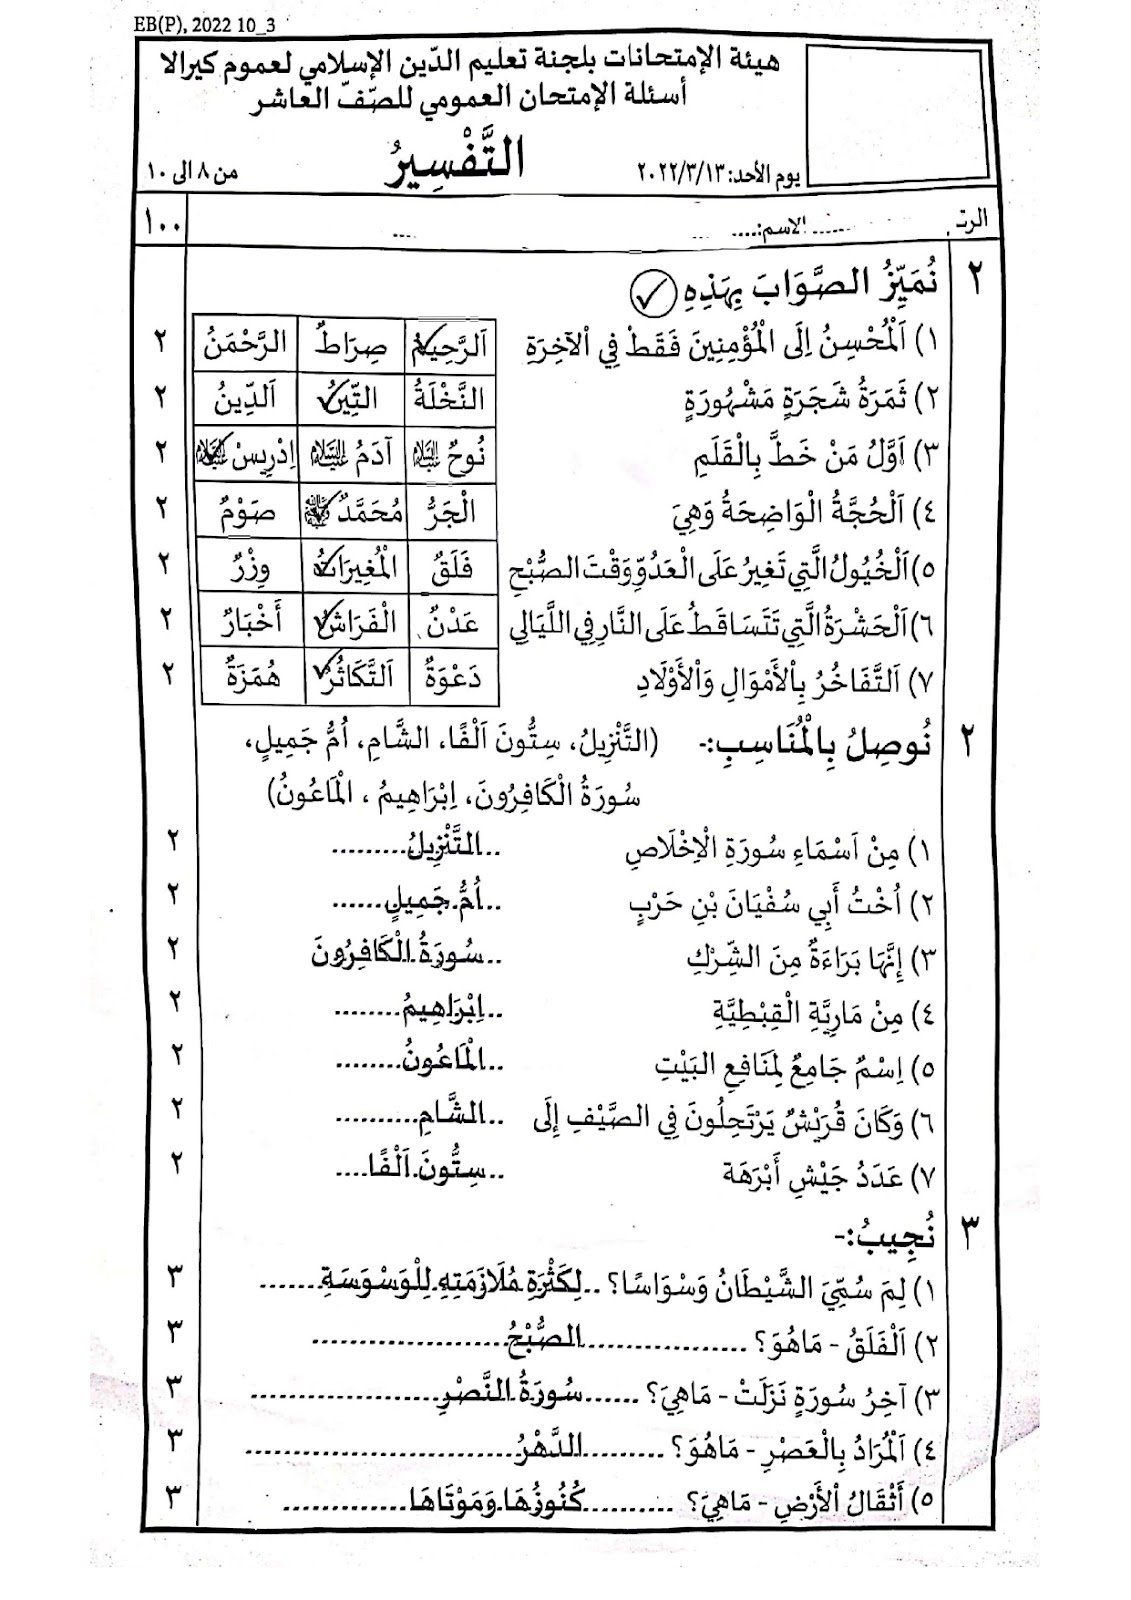 EB(P), 2022 10_3
هيئة الإمتحانات بلجنة تعليم الدّين الإسلامي لعموم كيرالا
أسئلة الإمتحان العمومي للصّفّ العاشر
التَّفْسِيرُ
يوم الأحد: ٢٠٢٢/٣/١٣
من ٨ الى ١٠
الاسم:.....
١٠٠
٢ نُمَيِّزُ الصَّوَابَ بِهَذِهِ ✓
١) اَلْمُحْسِنُ اِلَى الْمُؤْمِنِينَ فَقَطْ فِي الْآخِرَةِ اَلرَّحِيمُ ✓ صِرَاطٌ الرَّحْمَنُ ٢
٢) ثَمَرَةُ شَجَرَةٍ مَشْهُورَةٍ النَّخْلَةُ التِّينُ ✓ اَلدِّينُ ٢
٣) اَوَّلُ مَنْ خَطَّ بِالْقَلَمِ نُوحٌ عليه السلام آدَمُ عليه السلام اِدْرِيسْ عليه السلام ✓ ٢
٤) اَلْحُجَّةُ الْوَاضِحَةُ وَهِيَ الْجَرُّ مُحَمَّدٌ ﷺ ✓ صَوْمٌ ٢
٥) اَلْخُيُولُ الَّتِي تَغِيرُ عَلَى الْعَدُوِّ وَقْتَ الصُّبْحِ فَلَقٌ الْمُغِيرَاتُ ✓ وِزْرٌ ٢
٦) اَلْحَشْرَةُ الَّتِي تَتَسَاقَطُ عَلَى النَّارِ فِي اللَّيَالِي عَدْنٌ الْفَرَاشُ ✓ أَخْبَارٌ ٢
٧) اَلتَّفَاخُرُ بِالْأَمْوَالِ وَالْأَوْلَادِ دَعْوَةٌ اَلتَّكَاثُرُ ✓ هُمَزَةٌ ٢
٢ نُوصِلُ بِالْمُنَاسِبِ:- (التَّنْزِيلُ، سِتُّونَ اَلْفًا، الشَّامِ، اُمُّ جَمِيلٍ،
سُورَةُ الْكَافِرُونَ، اِبْرَاهِيمُ ، الْمَاعُونُ)
١) مِنْ اَسْمَاءِ سُورَةِ الْاِخْلَاصِ ..التَّنْزِيلُ......... ٢
٢) اُخْتُ أَبِي سُفْيَانَ بْنِ حَرْبٍ ..اُمُّ.جَمِيلٍ...... ٢
٣) إِنَّهَا بَرَاءَةٌ مِنَ الشِّرْكِ ..سُورَةُ.الْكَافِرُونَ ٢
٤) مِنْ مَارِيَّةِ الْقِبْطِيَّةِ ..اِبْرَاهِيمُ........ ٢
٥) اِسْمٌ جَامِعٌ لِمَنَافِعِ البَيْتِ ..الْمَاعُونُ........ ٢
٦) وَكَانَ قُرَيْشٌ يَرْتَحِلُونَ فِي الصَّيْفِ إِلَى ..الشَّامِ.......... ٢
٧) عَدَدُ جَيْشِ أَبْرَهَة ..سِتُّونَ.اَلْفًا.... ٢
٣ نُجِيبُ:-
١) لِمَ سُمِّيَ الشَّيْطَانُ وَسْوَاسًا؟ ..لِكَثْرَةِ.مُلَازَمَتِهِ.لِلْوَسْوَسَةِ....... ٣
٢) اَلْفَلَقُ - مَاهُوَ؟ ..................الصُّبْحُ..................... ٣
٣) آخِرُ سُورَةٍ نَزَلَتْ - مَاهِيَ؟ ......سُورَةُ.النَّصْرِ.................... ٣
٤) اَلْمُرَادُ بِالْعَصْرِ - مَاهُوَ؟ .........الدَّهْرُ............................. ٣
٥) أَثْقَالُ الْأَرْضِ - مَاهِيَ؟ ..........كُنُوزُهَا.وَمَوْتَاهَا.............. ٣